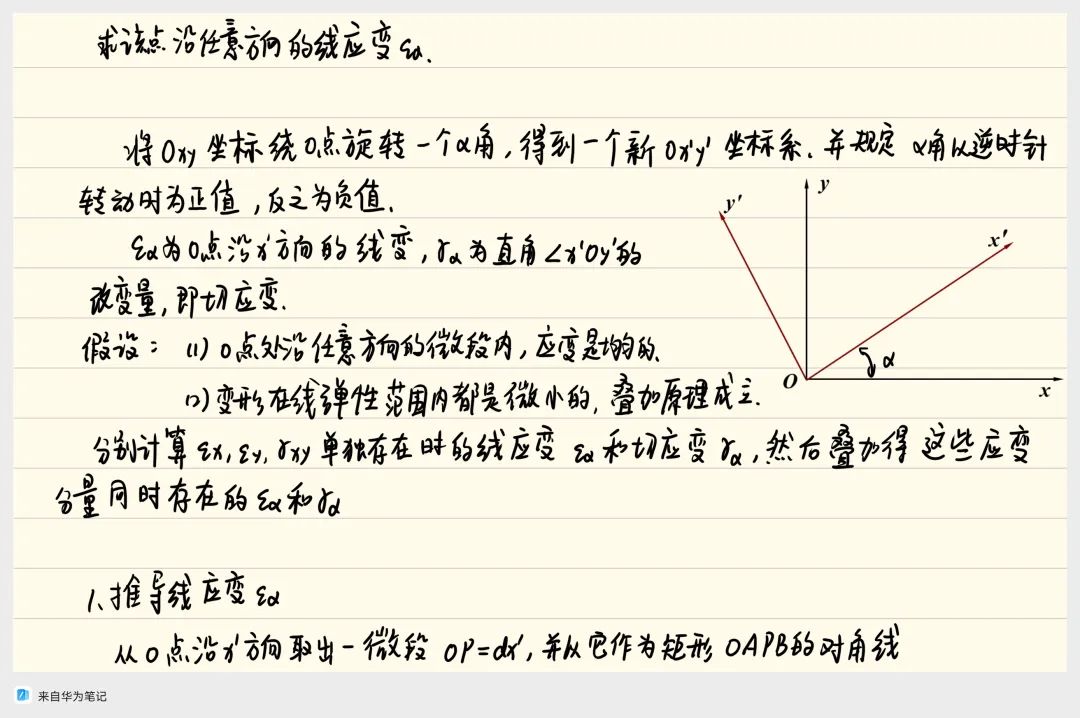 求该点沿任意方向的线应变εα.
将Oxy坐标绕O点旋转一个α角,得到一个新Ox'y'坐标系.并规定 α角从逆时针
转动时为正值,反之为负值.
εα为O点沿x'方向的线变,γα为直角∠x'Oy'的
改变量,即切应变.
假设: (1) O点处沿任意方向的微段内,应变是均匀的.
(2) 变形在线弹性范围内都是微小的,叠加原理成立.
分别计算εx,εy,γxy单独存在时的线应变εα和切应变γα,然后叠加得这些应变
分量同时存在的εα和γα
1、推导线应变εα
从O点沿x'方向取出一微段 OP=dx',并从它作为矩形OAPB的对角线
y
y'
x'
α
O
x
来自华为笔记